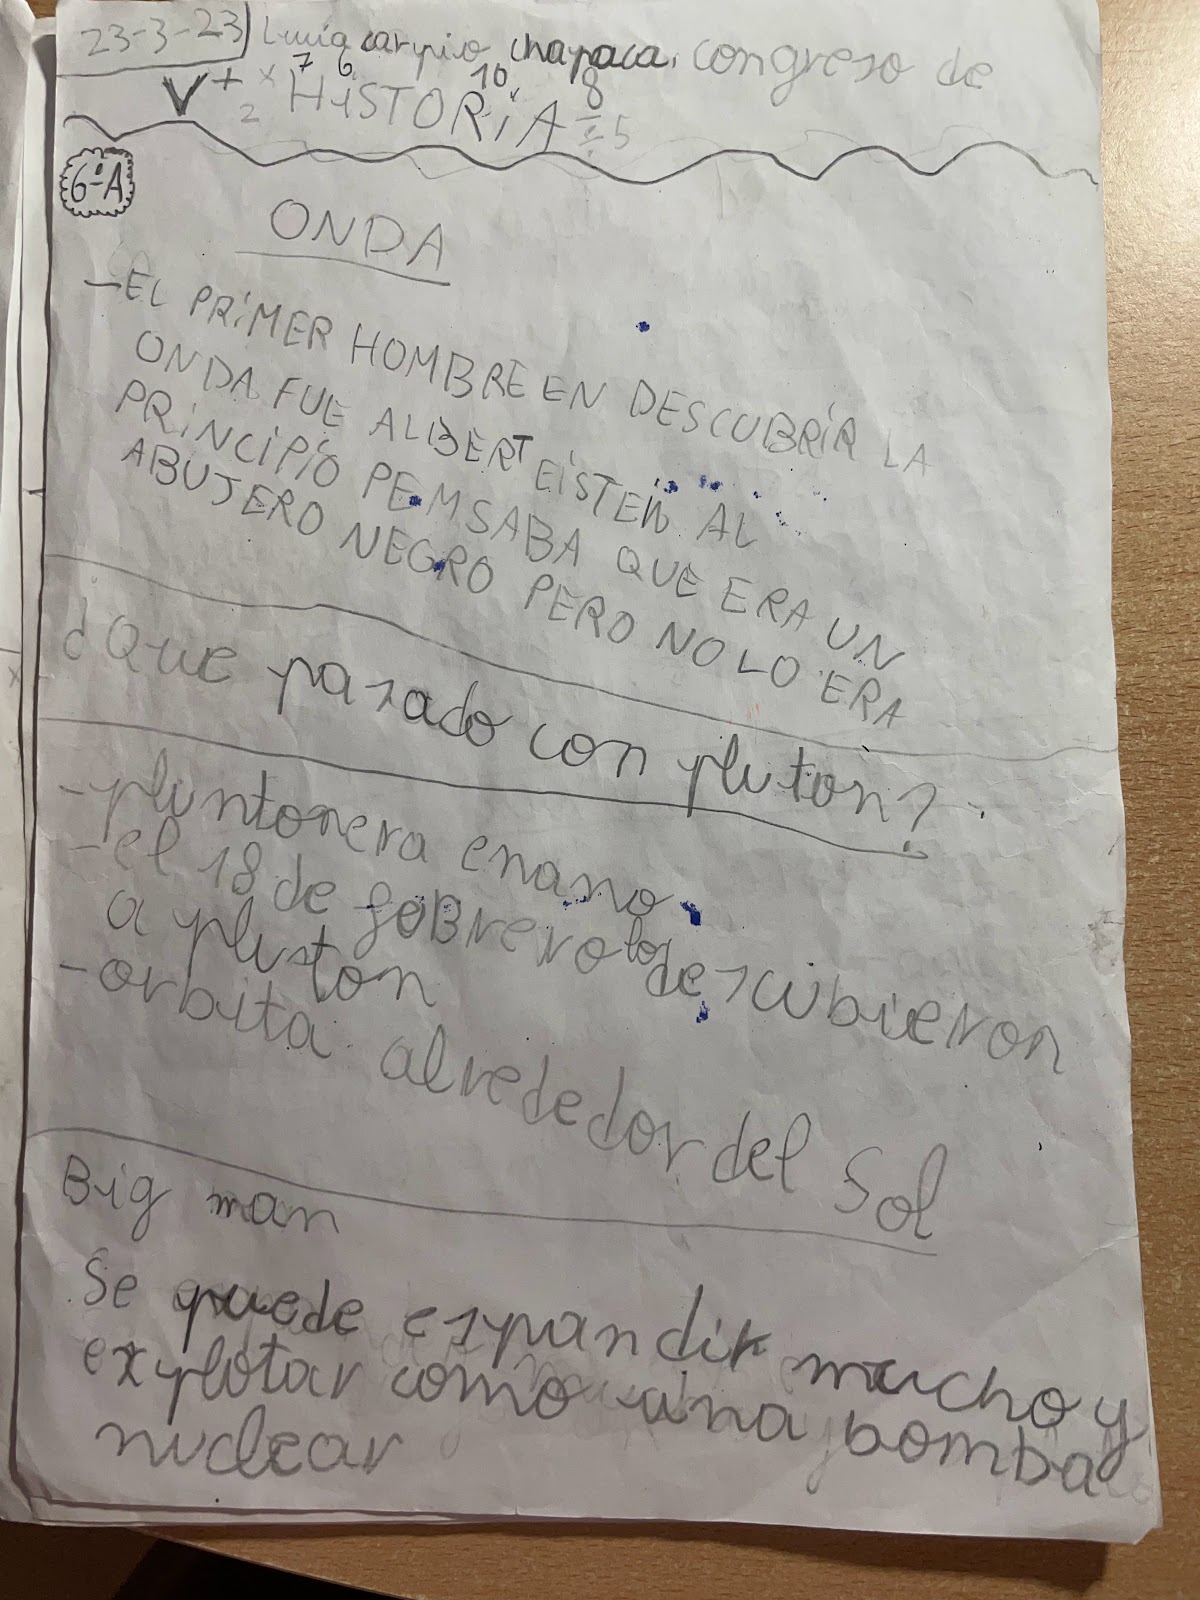 23-3-23 Lucía carpio chapaca. congreso de
V + x 7 6 10 8
2 HiSTORiA ÷ 5
6ºA
ONDA
-EL PRiMER HOMBRE EN DESCUBRiR LA
ONDA FUE ALBERT EiSTEiN AL
PRiNCiPiO PEMSABA QUE ERA UN
ABUJERO NEGRO PERO NO LO ERA
¿Que pasado con pluton?
-pluntonera enano
-el 18 de feBrero los descubieron
a pluston
-orbita alrededor del Sol
Big man
Se puede espandir mucho y
explotar como una bomba
nuclear